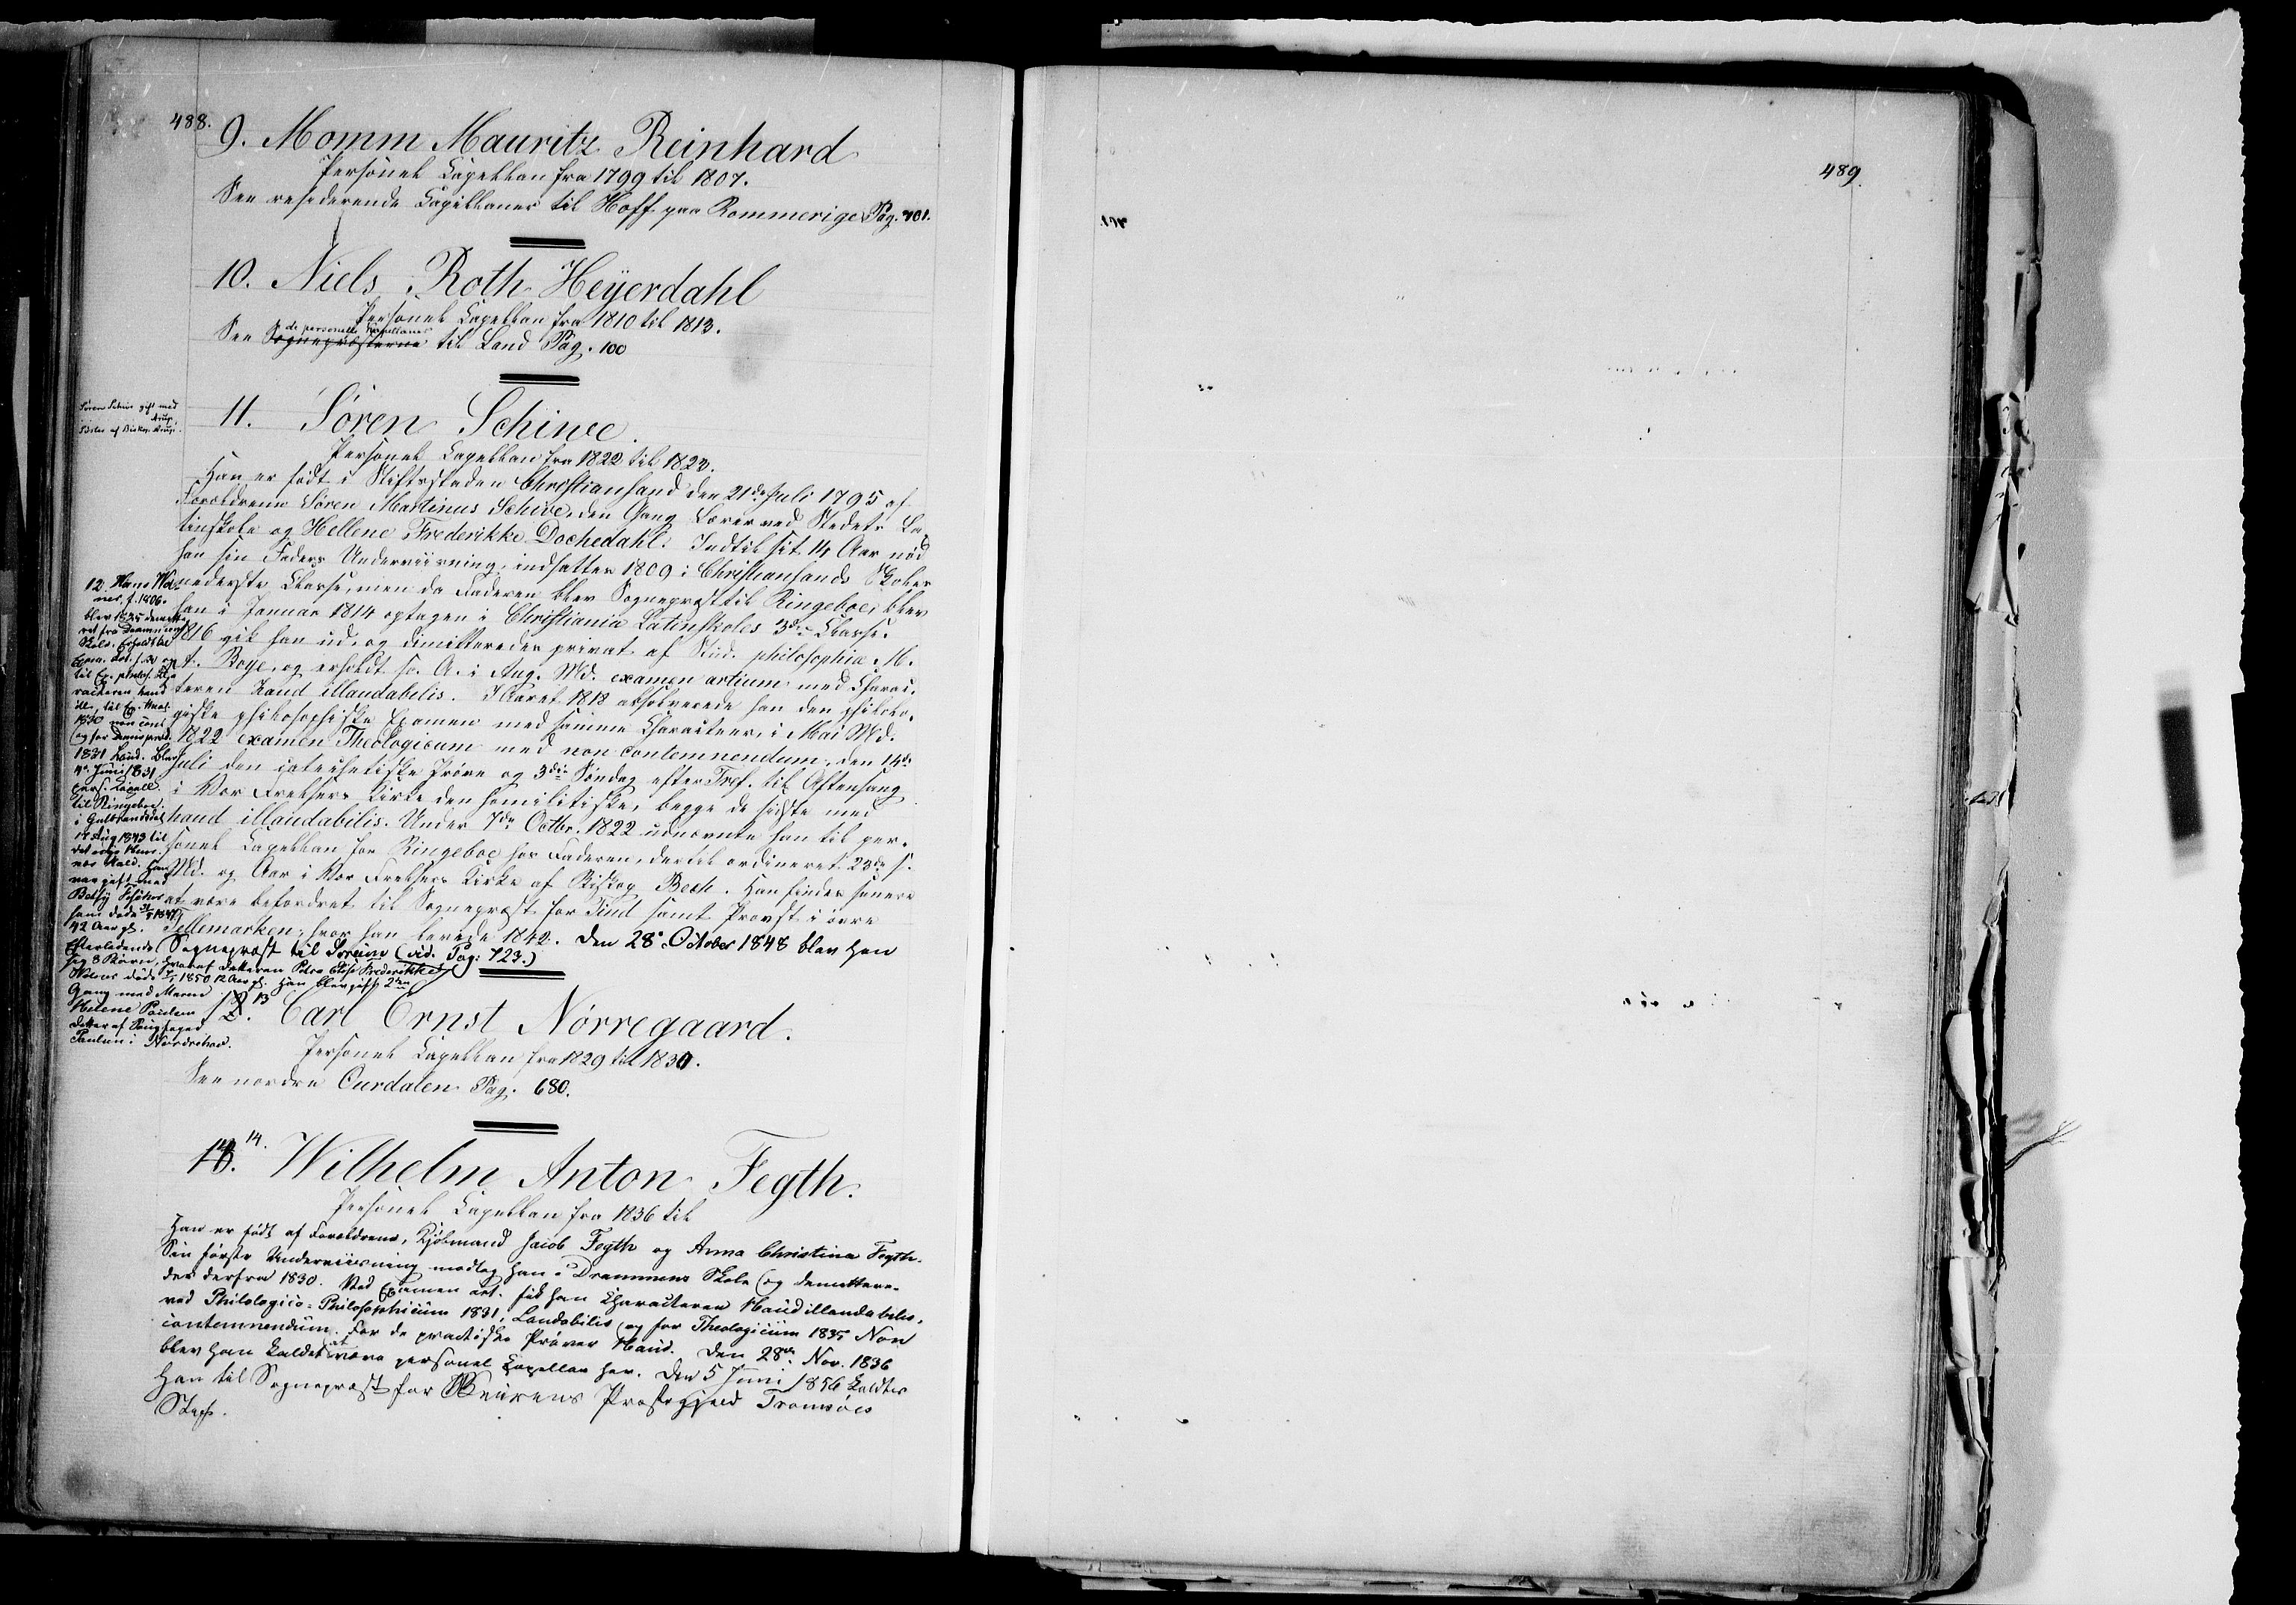 488.
9. Momm Mauritz Reinhard
Personel Capellan fra 1799 til 1807.
See residerende Capellaner til Hoff paa Rommerige Pag. 701.
10. Niels Roth Heÿerdahl
Personel Capellan fra 1810 til 1813.
de personelle Capellaner
See Sognepræsterne til Land Pag. 100
Søren Schive gift med
Arup,
Datter af Biskop Arup.
11. Søren Schive.
Personel Capellan fra 1822 til 1823.
Han er født i Stiftsstaden Christiansand den 21de Juli 1795 af
Forældrene Søren Martinus Schive, den Gang Lærer ved Stedets La-
tinskole og Hellene Frederikke Dochedahl. Indtil sit 14 Aar nød
han sin Faders Underviisning, indsattes 1809 i Christiansands Skoles
nederste Classe, men da Faderen blev Sognepræst til Ringeboe, blev
han i Januar 1814 optagen i Christiania Latinskoles 3die Classe.
1816 gik han ud, og dimitteredes privat af Stud. philosophiæ M.
A. Boye, og erholdt s. A. i Aug. Md. examen artium med Charac-
teren haud illaudabilis. I Aaret 1818 absolverede han den philolo-
giske philosophiske Examen med samme Characteer, i Mai Md.
1822 examen Theologicum med non contemnendum, den 14de
Juli den catechetiske Prøve og 3die Søndag efter Tref. til Aftensang
i Vor Frelsers Kirke den homiletiske, begge de sidste med
haud illaudabilis. Under 7de Octbr. 1822 udnævnte han til per-
sonel Capellan for Ringeboe hos Faderen, dertil ordineret 23de s.
Md. og Aar i Vor Frelsers Kirke af Biskop Bech. Han findes senere
at være befordret til Sognepræst for Tind samt Provst i øvre
Tellemarken, hvor han levede 1842. Den 28de October 1848 blev han
Sognepræst til Soreim (vid. Pag: 723.)
12. Hans Wa
ner f. 1806.
blev 1825 demitte
ret fra Drammens
Skole. Erholdt til
Exa. Art. h. ill. og
til Ex. philos. Cha
racteren haud
ill., til Ex. theol.
1830 non cont.
og for Demispræd.
1831 haud. Blev
4de Juni 1831
pers. Capell.
til Ringeboe
i Gulbrandsdal
14 Aug 1843 til
Han
var gift med
Betsy
ham døde 3/5 1847
42 Aar gl.
Efterladende
sig 8 Børn, hvoraf Datteren Petra Elise Frederikke
døde 7/5 1850 12 Aar gl. Han blev gift 2den
Gang med Maren
Helene Paulsen
Datter af
Paulsen i Nordrehov.
12. 13
Carl Ernst Nørregaard.
Personel Capellan fra 1829 til 1830.
See nordre Ourdalen Pag. 680.
13. 14.
Wilhelm Anton Fegth.
Personel Capellan fra 1836 til
Han er født af Forældrene, Kjøbmand Jacob Fegth og Anna Christina Fegth.
Sin første Underviisning modtog han i Drammens Skole og demittere-
des derfra 1830. Ved Examen art. fik han Characteren Haud illaudabilis,
ved Philologico-Philosophicum 1831, Laudabilis og for Theologicum 1835 Non
contemnendum. For de practiske Prøver Haud. Den 28de Nov. 1836
blev han kaldet at være personel Capellan her. Den 5 Juni 1856 kaldtes
han til Sognepræst for Præstegjeld Tromsøes
Stift.
489.